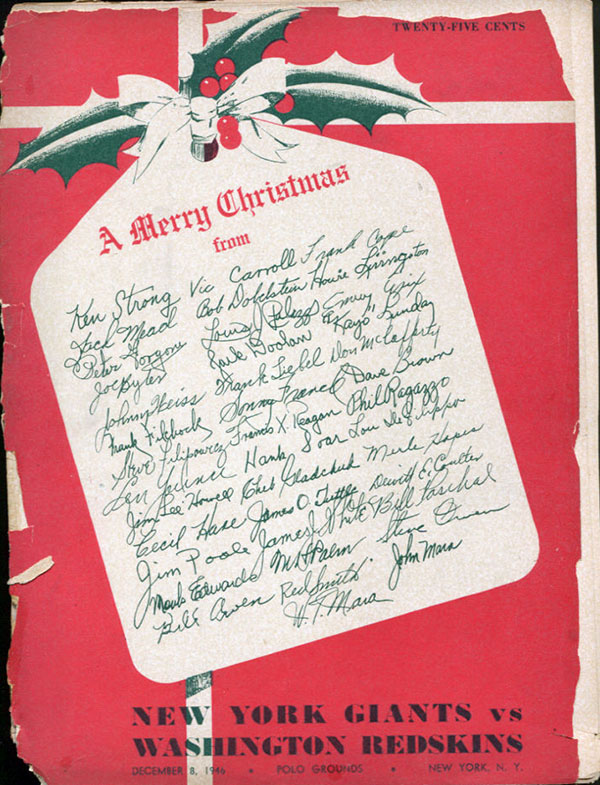 TWENTY-FIVE CENTS
A Merry Christmas
from
Ken Strong Vic Carroll Frank Cope
Jack Mead Bob Dobelstein Howie Livingston
Peter Gorgone Louis J Palazzi Emery Nix
Joe Byler Jack Doolan "Kayo" Lunday
Johnny Weiss Frank Liebel Don McCafferty
Frank Filchock Sonny Franck Dave Brown
Steve Filipowicz Francis X. Reagan Phil Ragazzo
Len Younce Hank Soar Lou DeFilippo
Jim Lee Howell Chet Gladchuk Merle Hapes
Cecil Hare James O. Tuttle Dewitt E. Coulter
Jim Poole James J. White Bill Paschal
Monk Edwards Palm Steve Owen
Bill Owen Red Smith John Mara
W. T. Mara
NEW YORK GIANTS vs
WASHINGTON REDSKINS
DECEMBER 8, 1946 • POLO GROUNDS • NEW YORK, N. Y.